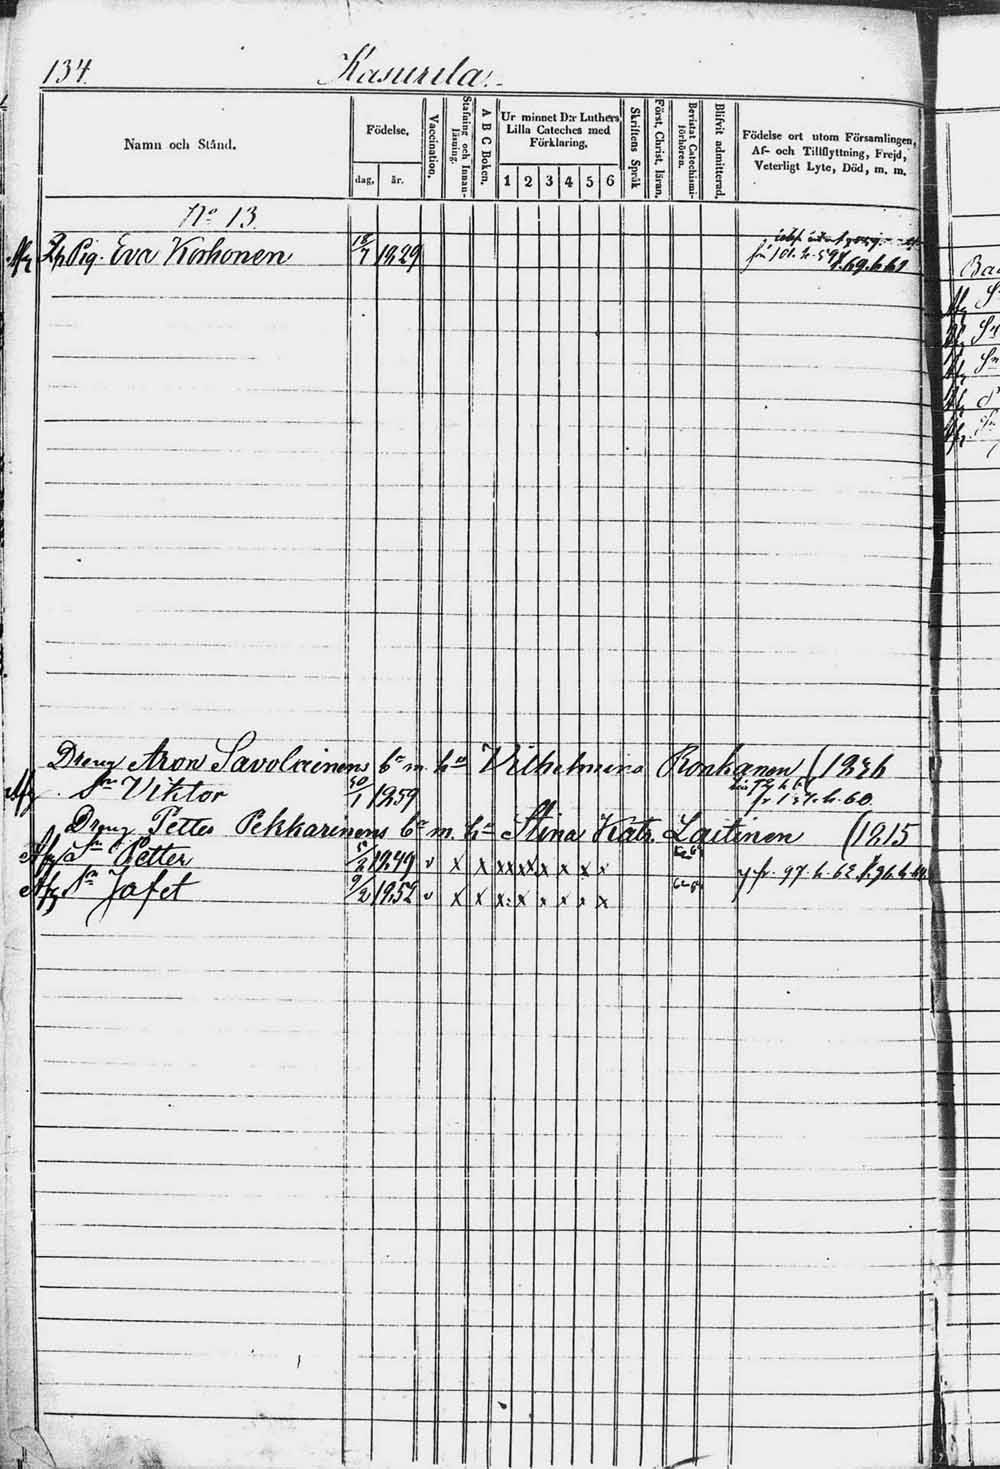 134.
Kasurila.
Namn och Stånd.
Födelse,
dag,
år.
Vaccination.
Stafning och Innan-
läsning.
A B C Boken.
Ur minnet D:r Luthers
Lilla Cateches med
Förklaring.
1 2 3 4 5 6
Skriftens Språk
Först. Christ. läran.
Bevistat Catechismi-
förhören.
Blifvit admitterad.
Födelse ort utom Församlingen,
Af- och Tillflyttning, Frejd,
Veterligt Lyte, Död, m. m.
No 13.
Pig. Eva Korhonen 18/7 1829
Dreng Aron Savolainens bn m. hu Vilhelmina Ronkanen (1826
Sn Viktor 30/1 1859
fr 137. h. 60.
Dreng Petter Pekkarinens bn m. hu Stina Katr. Laitinen (1815
Afg Sn Petter 5/2 1849 v x x x x x x x x
fr. 97. h. 62.
Afg Sn Jafet 9/2 1852 v x x x x x x x x